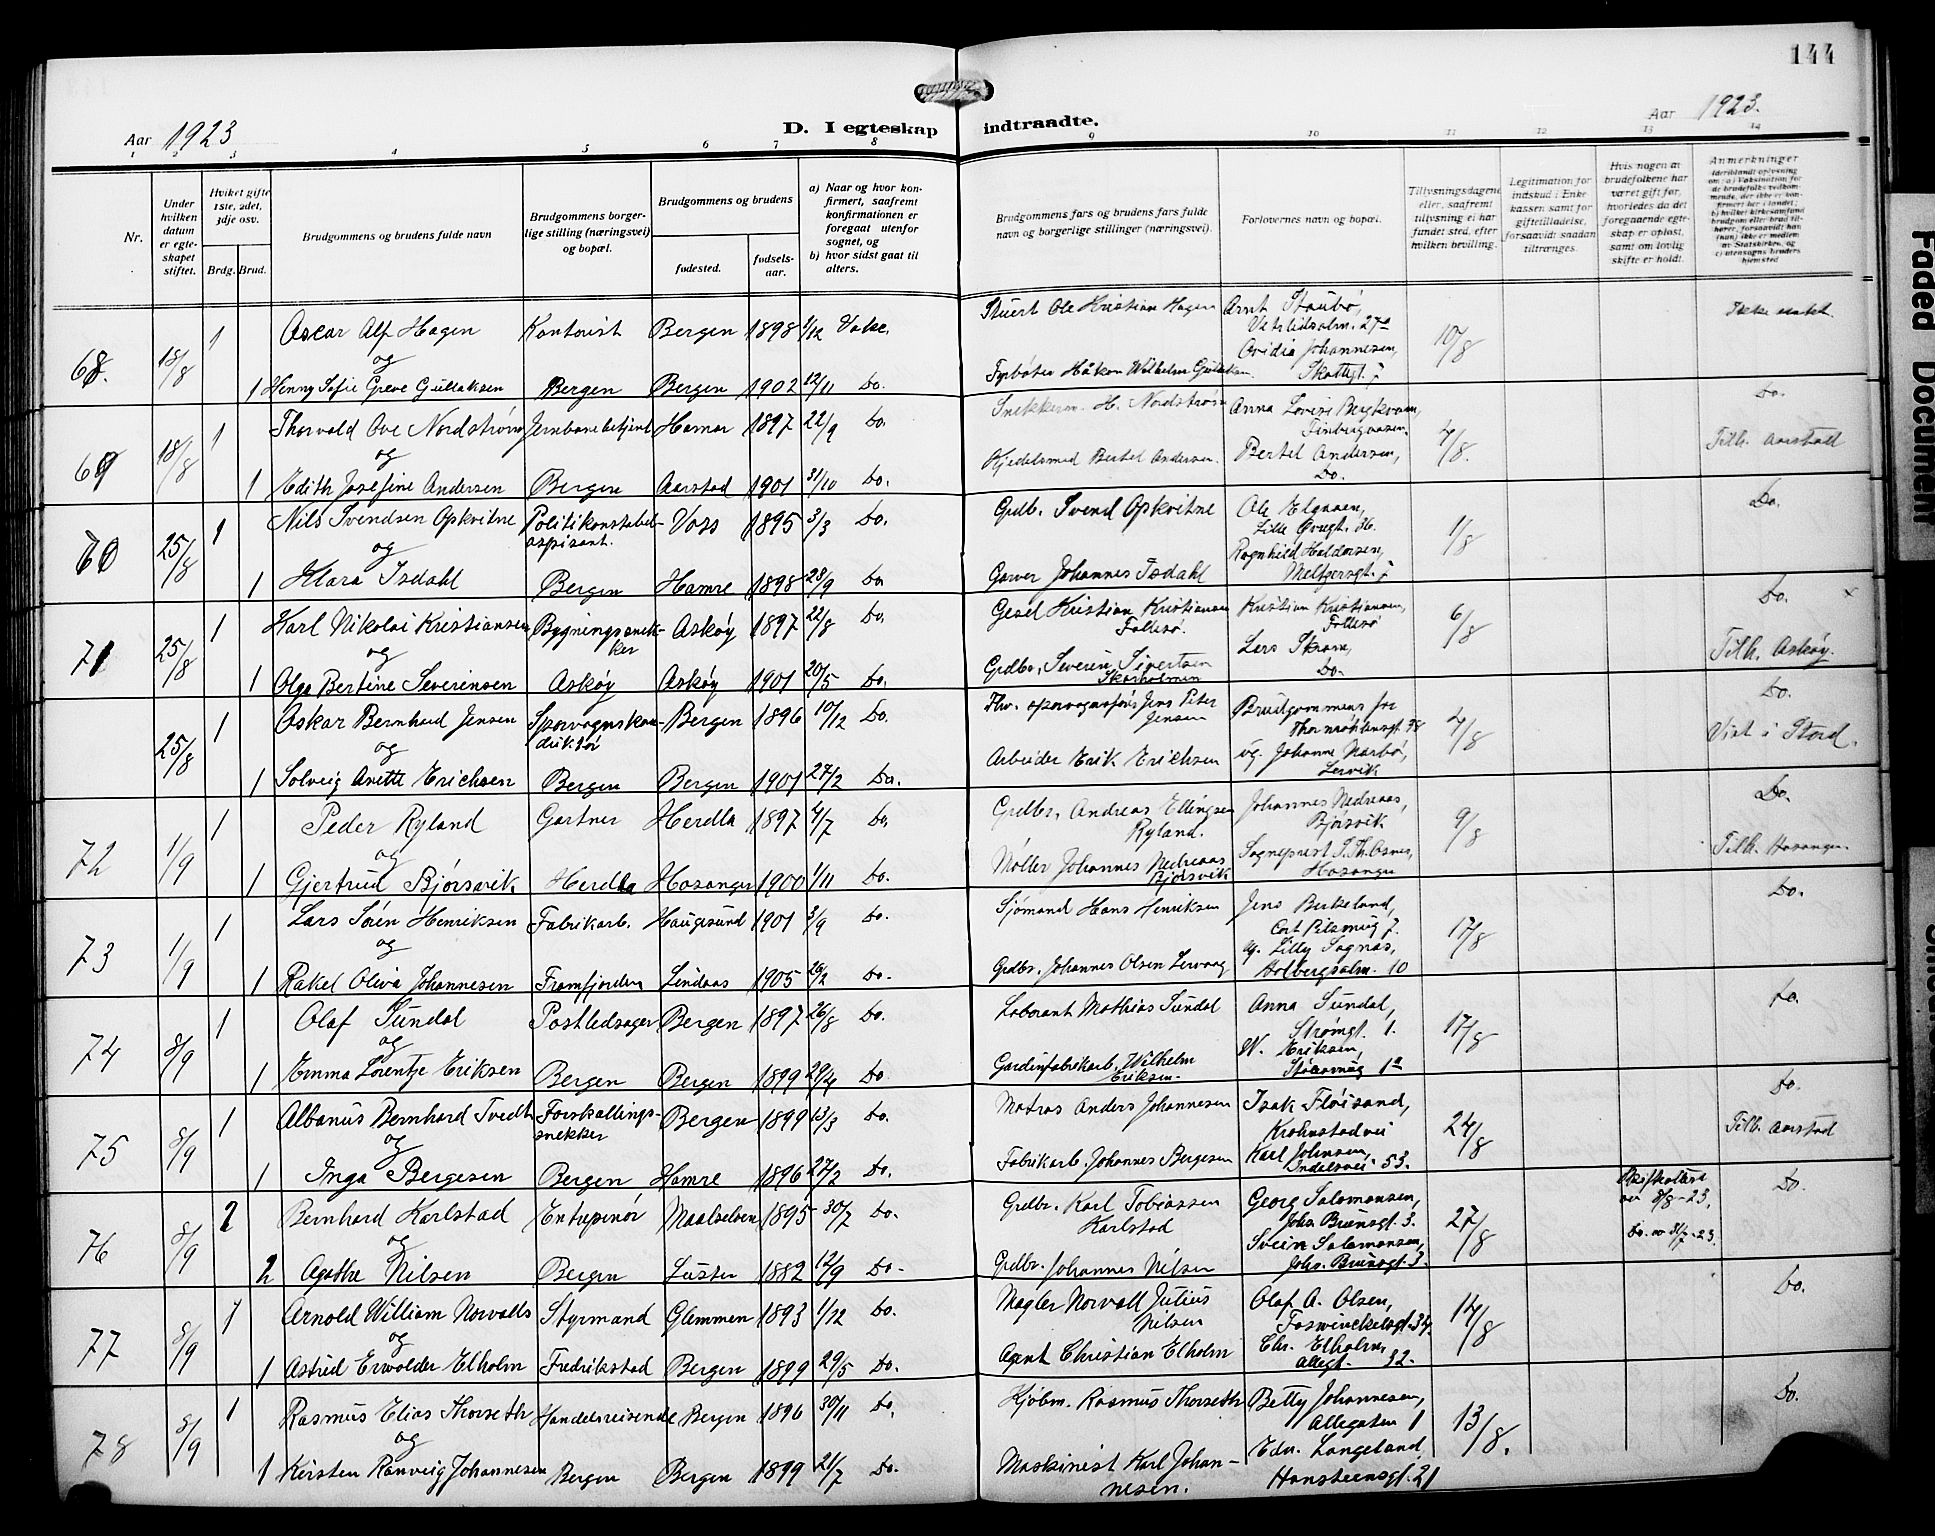 144
Aar 1923
D. I egteskap indtraadte.
Aar 1923.
1 2 3 4 5 6 7 8 9 10 11 12 13 14
Nr.
Under hvilken datum er egteskapet stiftet.
Hvilket gifte 1ste, 2det, 3dje osv.
Brdg. Brud.
Brudgommens og brudens fulde navn
Brudgommens borgerlige stilling (næringsvei) og bopæl.
Brudgommens og brudens
fødested.
fødselsaar.
a) Naar og hvor konfirmert, saafremt konfirmationen er foregaat utenfor sognet, og
b) hvor sidst gaat til alters.
Brudgommens fars og brudens fars fulde navn og borgerlige stillinger (næringsvei).
Forlovernes navn og bopæl.
Tillysningsdagene eller, saafremt tillysning ei har fundet sted, efter hvilken bevilling.
Legitimation for indskud i Enkekassen samt for giftetilladelse, forsaavidt saadan tiltrænges.
Hvis nogen av brudefolkene har været gift før, hvorledes da det foregaaende egteskap er opløst, samt om lovlig skifte er holdt.
Anmerkninger
68. 18/8 1 Oscar Alf Hagen Kontorist Bergen 1898 1/12 Vake. Stuert Ole Kristian Hagen Arnt Staubø, 10/8 Ikke
Vetrlidsalm. 27a
og Ovidia Johannesen,
1 Henny Sofie Greve Gullaksen Bergen Bergen 1902 12/11 Do. Fyrbøter Håkon Wilhelm Skottegt. 7
69 18/8 1 Thorvald Ove Nordstrøm Jernbanebetjent Hamar 1897 22/9 Do. Snekkerm. H. Nordstrøm Anna Lovise 4/8. Do.
og Finbergaasen. Tilh. Aarstad
1 Edith Josefine Andersen Bergen Aarstad 1901 31/10 Do. Kjedelsmed Bertel Andersen. Bertel Andersen,
Do.
70 25/8 1 Nils Svendsen Opkvitne Politikonstabel- Voss 1895 3/3 Do. Grdb. Svend Opkvitne Ole 1/8 Do.
aspirant. Lille Øvregt. 36.
og Ragnhild Haldorsen,
1 Klara Isdahl Bergen Hamre 1898 28/9 Do Garver Johannes Isdahl Meltzersgt. 7
71 25/8 1 Karl Nikolai Kristiansen Bygningssnek- Askøy 1897 22/8 Do. Gesel Kristian Kristiansen Kristian Kristiansen, 6/8 Do. x
ker Follesø. Follesø
og Lars Skram, Tilh. Askøy.
1 Olga Bertine Severinsen Askøy Askøy 1901 20/5 Do. Grdbr. Severin Sivertsen Do.
Skarholmen
25/8 1 Oskar Bernhard Jensen Sporvognskon- Bergen 1896 10/12 Do. Fhv. sporvognsførs Jens Peter Brudgommens far 4/8 Do.
duktør Jensen Thormøhlensgt. 78
og og Johanne Narbø, Viet i Stord.
1 Solveig Anette Erichsen Bergen Bergen 1901 27/2 Do. Arbeider Erik Erichsen Lervik
72 1/9 1 Peder Ryland Gartner Herdla 1897 4/7 Do. Grdbr. Andreas Ellingsen Johannes Nedreaas, 9/8 Do.
Ryland. Bjørsvik
og Sogneprest Tilh. Hosanger
1 Gjertrud Bjørsvik Herdla Hosanger 1900 1/11 Do. Møller Johannes Nedreaas Hosanger
Bjørsvik
73 1/9 1 Lars Søren Henriksen Fabrikarb. Haugesund 1901 3/9 Do. Sjømand Hans Henriksen Jens Birkeland, 17/8 Do.
Cort Pilsmug 7.
og og Lilly Sagnas,
1 Rakel Oliva Johannesen Framfjorden Lindaas 1905 26/2 Do. Grdbr. Johannes Olsen Lervaag Holbergsalm. 10
74 8/9 1 Olaf Sundal Postledsager Bergen 1897 26/8 Do. Laborant Mathias Sundal Anna Sundal, 17/8 Do.
Strømgt. 1.
og W. Eriksen,
1 Emma Lorentze Eriksen Bergen Bergen 1899 29/4 Do Gardinfabrikarb. Wilhelm 1a
Eriksen.
75 8/9 1 Albanus Bernhard Tvedt Forskallings- Bergen 1899 13/3 Do. Matros Anders Johannesen Isak Fløisand, 24/8 Do.
snekker Krohnstadvei Tilh. Aarstad
og Karl Johnsen,
1 Inga Bergesen Bergen Hamre 1896 27/2 Do. Fabrikarb. Johannes Bergesen Indalsvei 53.
76 8/9 2 Bernhard Karlstad Entrepenør Maalselven 1895 30/7 Do. Grdbr. Karl Tobiassen Georg Salomonsen, 27/8 Skifteattest Do.
Karlstad Johs Brunsgt. 3. av 8/8-23.
og Svein Salomonsen, Do. av 31/7-23.
2 Agathe Nilsen Bergen Luster 1882 12/9 Do. Grdbr. Johannes Nilsen Johs. Brunsgt. 3.
77 8/9 1 Arnold William Norvalls Styrmand Glemmen 1893 1/12 Do. Mægler Norvall Julius Olaf A. Olsen, 14/8 Do.
Nilsen Foswinckelsgt. 34.
og Chr. Elholm,
1 Astrid Erwolder Elholm Fredrikstad Bergen 1899 29/5 Do. Agent Christian Elholm Allegt. 32.
78 8/9 1 Rasmus Elias Thorseth Handelsreisende Bergen 1896 30/11 Do. Kjøbm. Rasmus Thorseth Betty Johannesen, 13/8. Do.
Allegaten 1
og Edv. Langeland
1 Kirsten Ranveig Johannesen Bergen Bergen 1899 21/7 Do. Maskinist Karl Johan- Hansteensgt. 21
nesen.
Faded Document